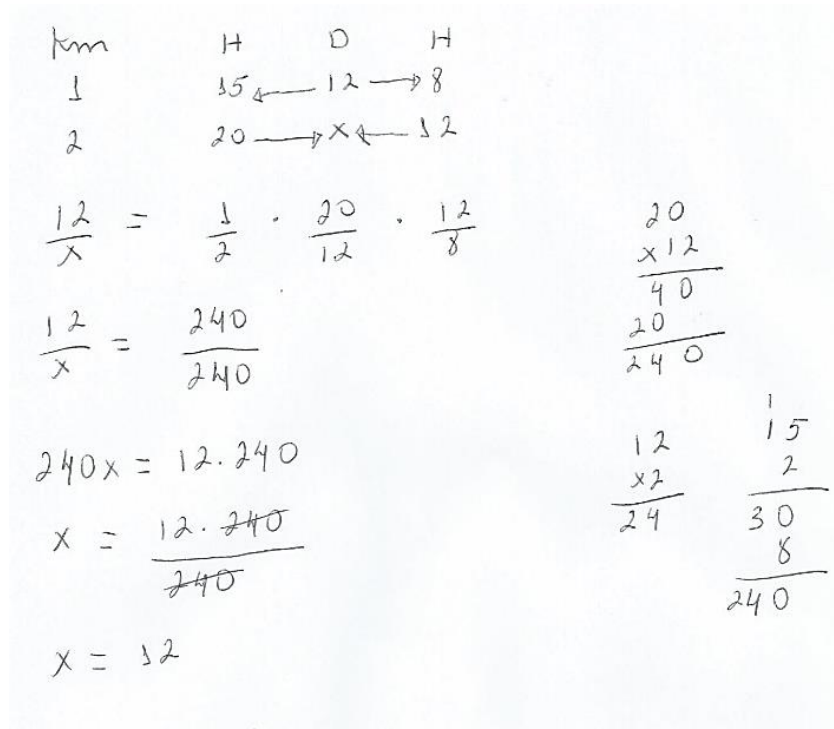 Km H D H
1 15 ← 12 → 8
2 20 → x ← 12
12/x = 1/2 · 20/12 · 12/8
12/x = 240/240
240x = 12.240
x = 12.240/240
x = 12
20
x12
40
20
240
12
x2
24
1
15
2
30
8
240